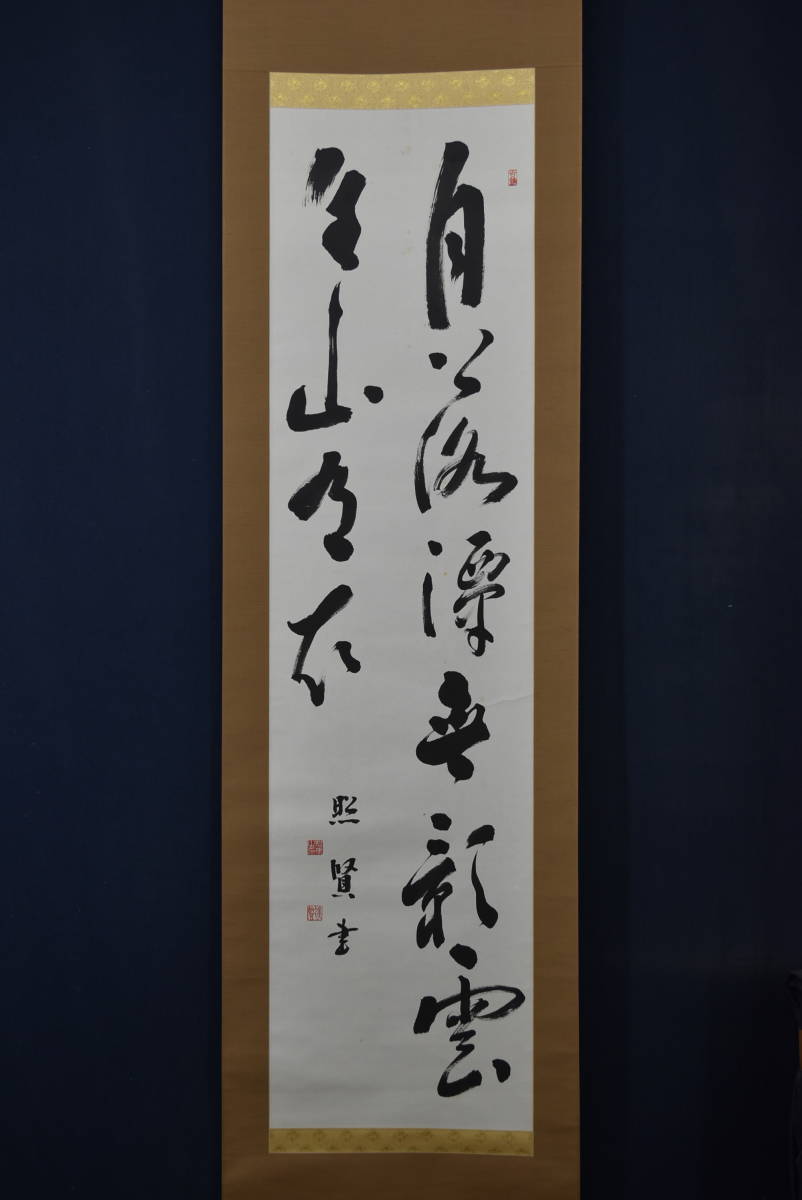 月落潭無影雲
生山有衣
照賢書